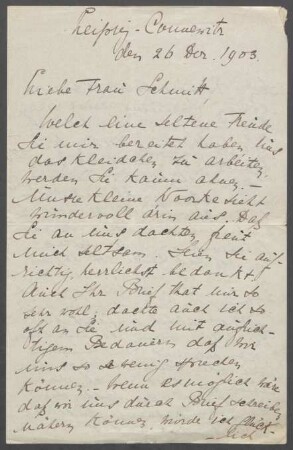 Leipzig-Connewitz
den 26 Dez. 1903.
Liebe Frau Schmitt,
Welch eine seltene Freude
Sie mir bereitet haben uns
das Kleidchen zu arbeiten,
werden Sie kaum ahnen. –
Unsere kleine sieht
wundervoll drin aus. Daß
Sie an uns dachten freut
mich seltsam. Seien Sie auf-
richtig, herzlichst bedankt
Auch Ihr Brief that mir so
sehr wohl, dachte auch ich so
oft an Sie und mit aufrich-
tigem Bedauern daß wir
uns so wenig sprechen
können. – Wenn es möglich wäre
daß wir uns durch Brief schreiben
nähern können, würde ich glück-
lich